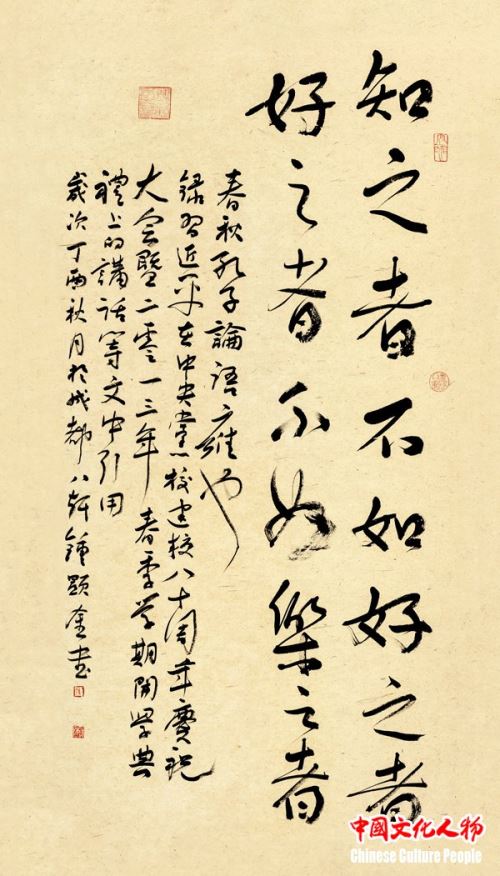 知之者不如好之者
好之者不如樂之者
春秋孔子論語雍也
錄習近平在中央黨校建校八十周年慶祝
大會暨二零一三年春季學期開學典
禮上的講話等文中引用
歲次丁酉秋月於成都八鍾顯金書
中國文化人物
Chinese Culture People